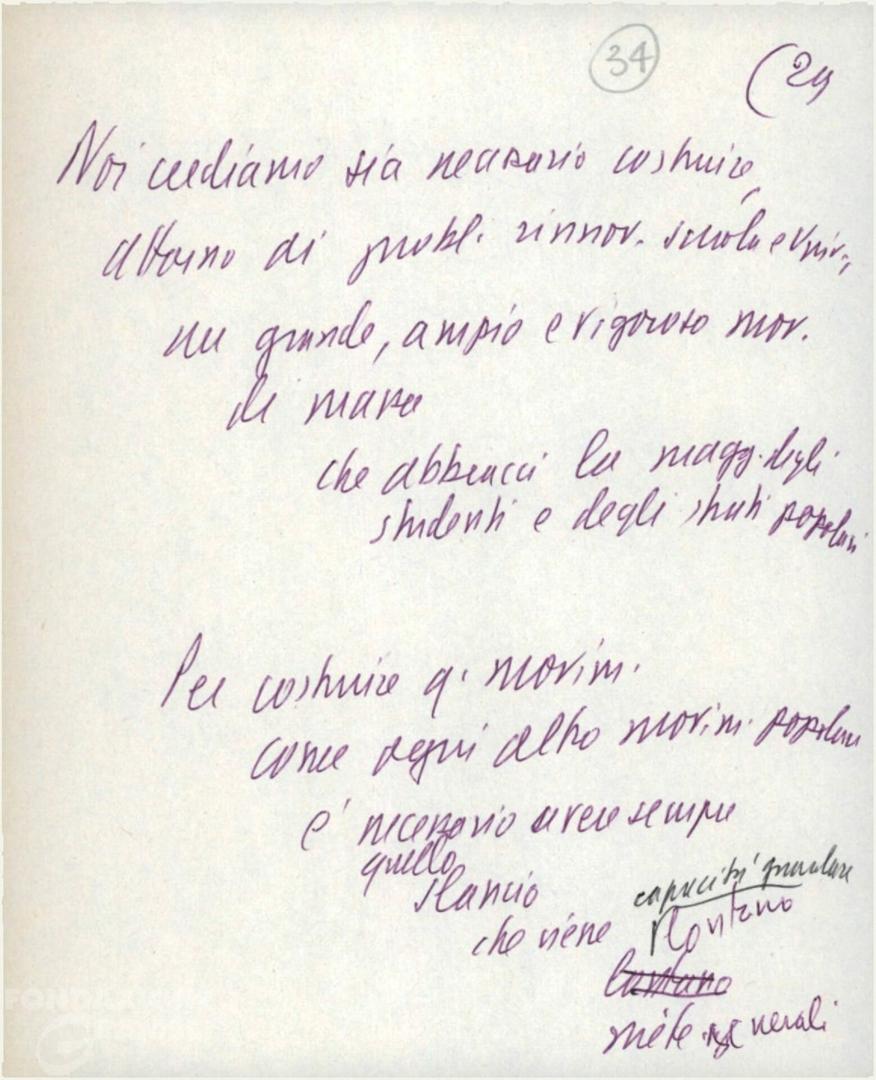 34 (29
Noi crediamo sia necessario costruire,
attorno ai probl. rinnov. scuola e Univ.,
un grande, ampio e vigoroso mov.
di massa
che abbracci la magg. degli
studenti e degli strati popolari
Per costruire q. movim.
come ogni altro movim. popolare
e' necessario avere sempre
quello
slancio
capacità guardare
che viene lontano
lontano
mète generali
FONDAZ